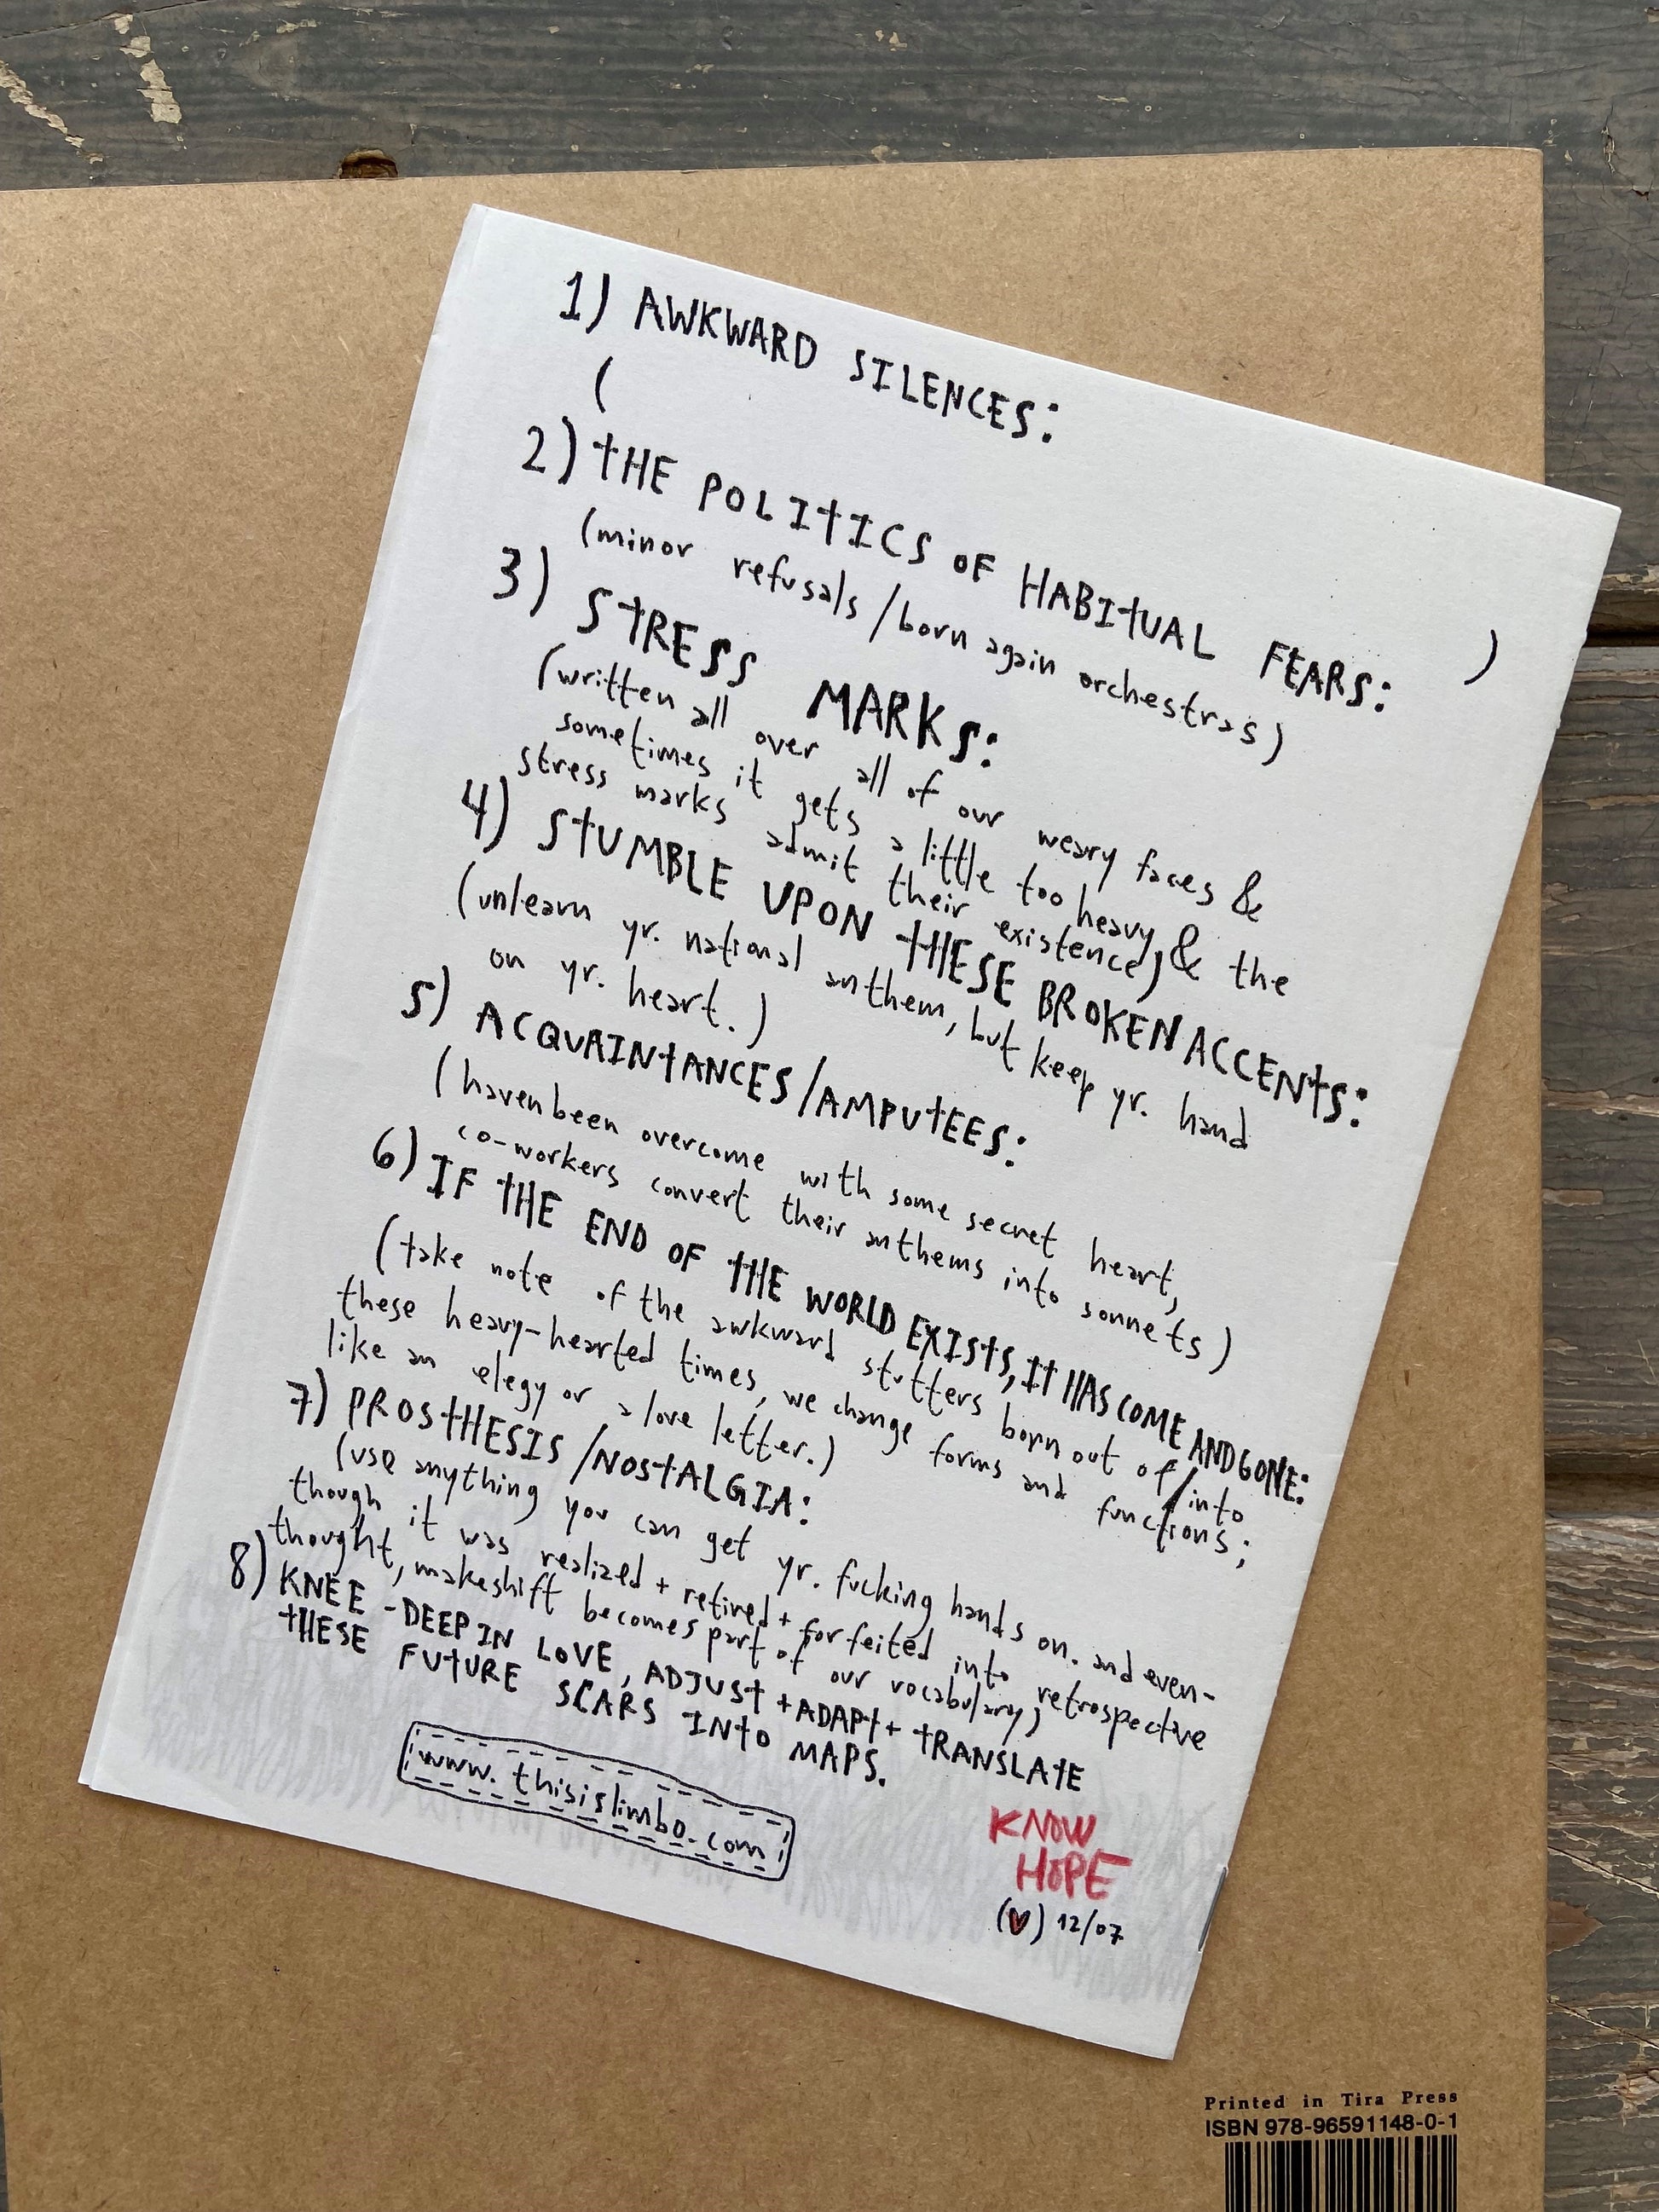 1) AWKWARD SILENCES:
( )
2) THE POLITICS OF HABITUAL FEARS:
(minor refusals/born again orchestras)
3) STRESS MARKS:
(written all over all of our weary faces &
sometimes it gets a little too heavy & the
stress marks admit their existence)
4) STUMBLE UPON THESE BROKEN ACCENTS:
(unlearn yr. national anthem, but keep yr. hand
on yr. heart.)
5) ACQUAINTANCES/AMPUTEES:
(haven been overcome with some secret heart,
co-workers convert their anthems into sonnets)
6) IF THE END OF THE WORLD EXISTS, IT HAS COME AND GONE:
(take note of the awkward stutters born out of/into
these heavy-hearted times, we change forms and functions;
like an elegy or a love letter.)
7) PROSTHESIS/NOSTALGIA:
(use anything you can get yr. fucking hands on. and even-
though it was realized + retired + forfeited into retrospective
thought, makeshift becomes part of our vocabulary;
8) KNEE-DEEP IN LOVE, ADJUST + ADAPT + TRANSLATE
THESE FUTURE SCARS INTO MAPS.
www.thisislimbo.com
KNOW
HOPE
(♥) 12/07
Printed in Tira Press
ISBN 978-96591148-0-1